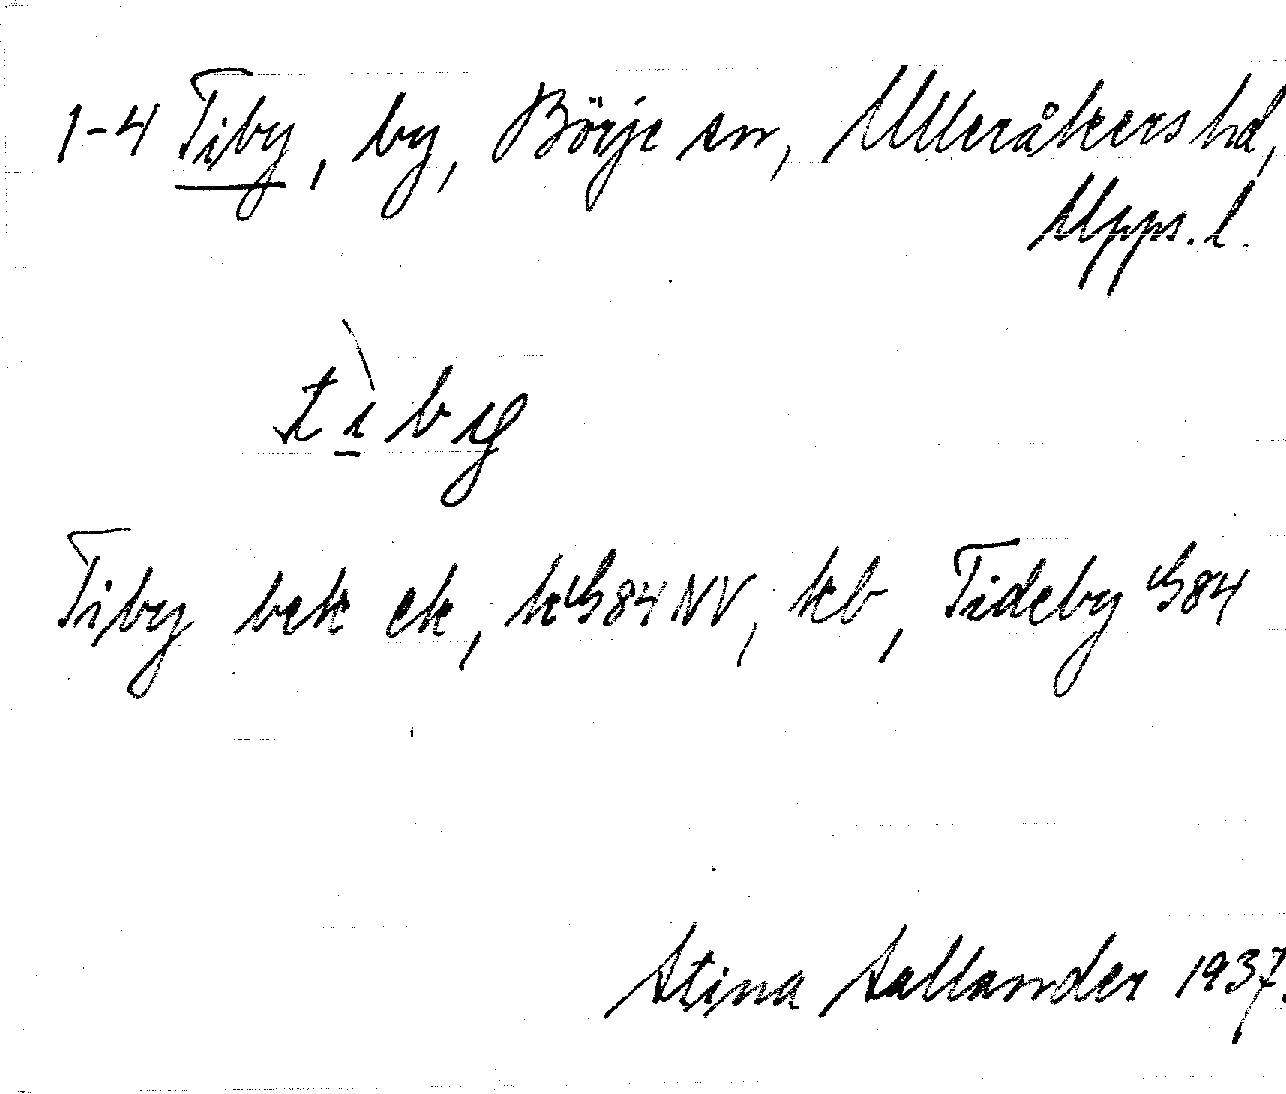 1-4 Tiby, by, Börje sn, Ulleråkers hd,
Upps. l.
tìby
Tiby bek ek, k G84NV, kb, Tideby G84
Stina Sallander 1937.